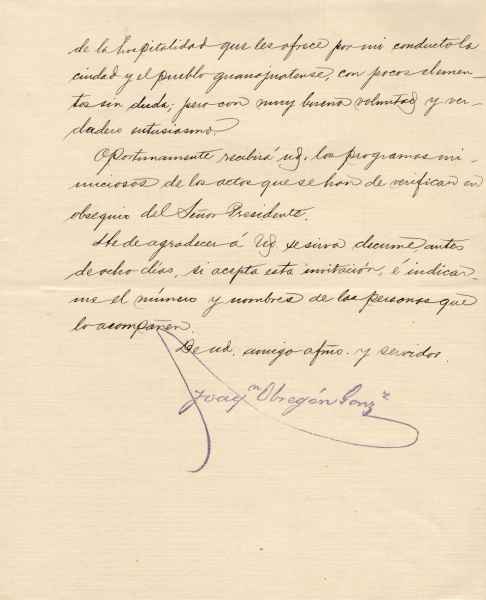 de la hospitalidad que les ofrece por mi conducto la
ciudad y el pueblo guanajuatense, con pocos elemen-
tos sin duda; pero con muy buena voluntad y ver-
dadero entusiasmo.
Oportunamente recibirá ud. los programas mi-
nuciosos de los actos que se han de verificar en
obsequio del Señor Presidente.
He de agradecer á Ud. se sirva decirme, antes
de ocho días, si acepta esta invitación, é indicar-
me el número y nombres de las personas que
lo acompañen.
De ud. amigo afmo. y servidor.
Joaqn Obregón Gonzz